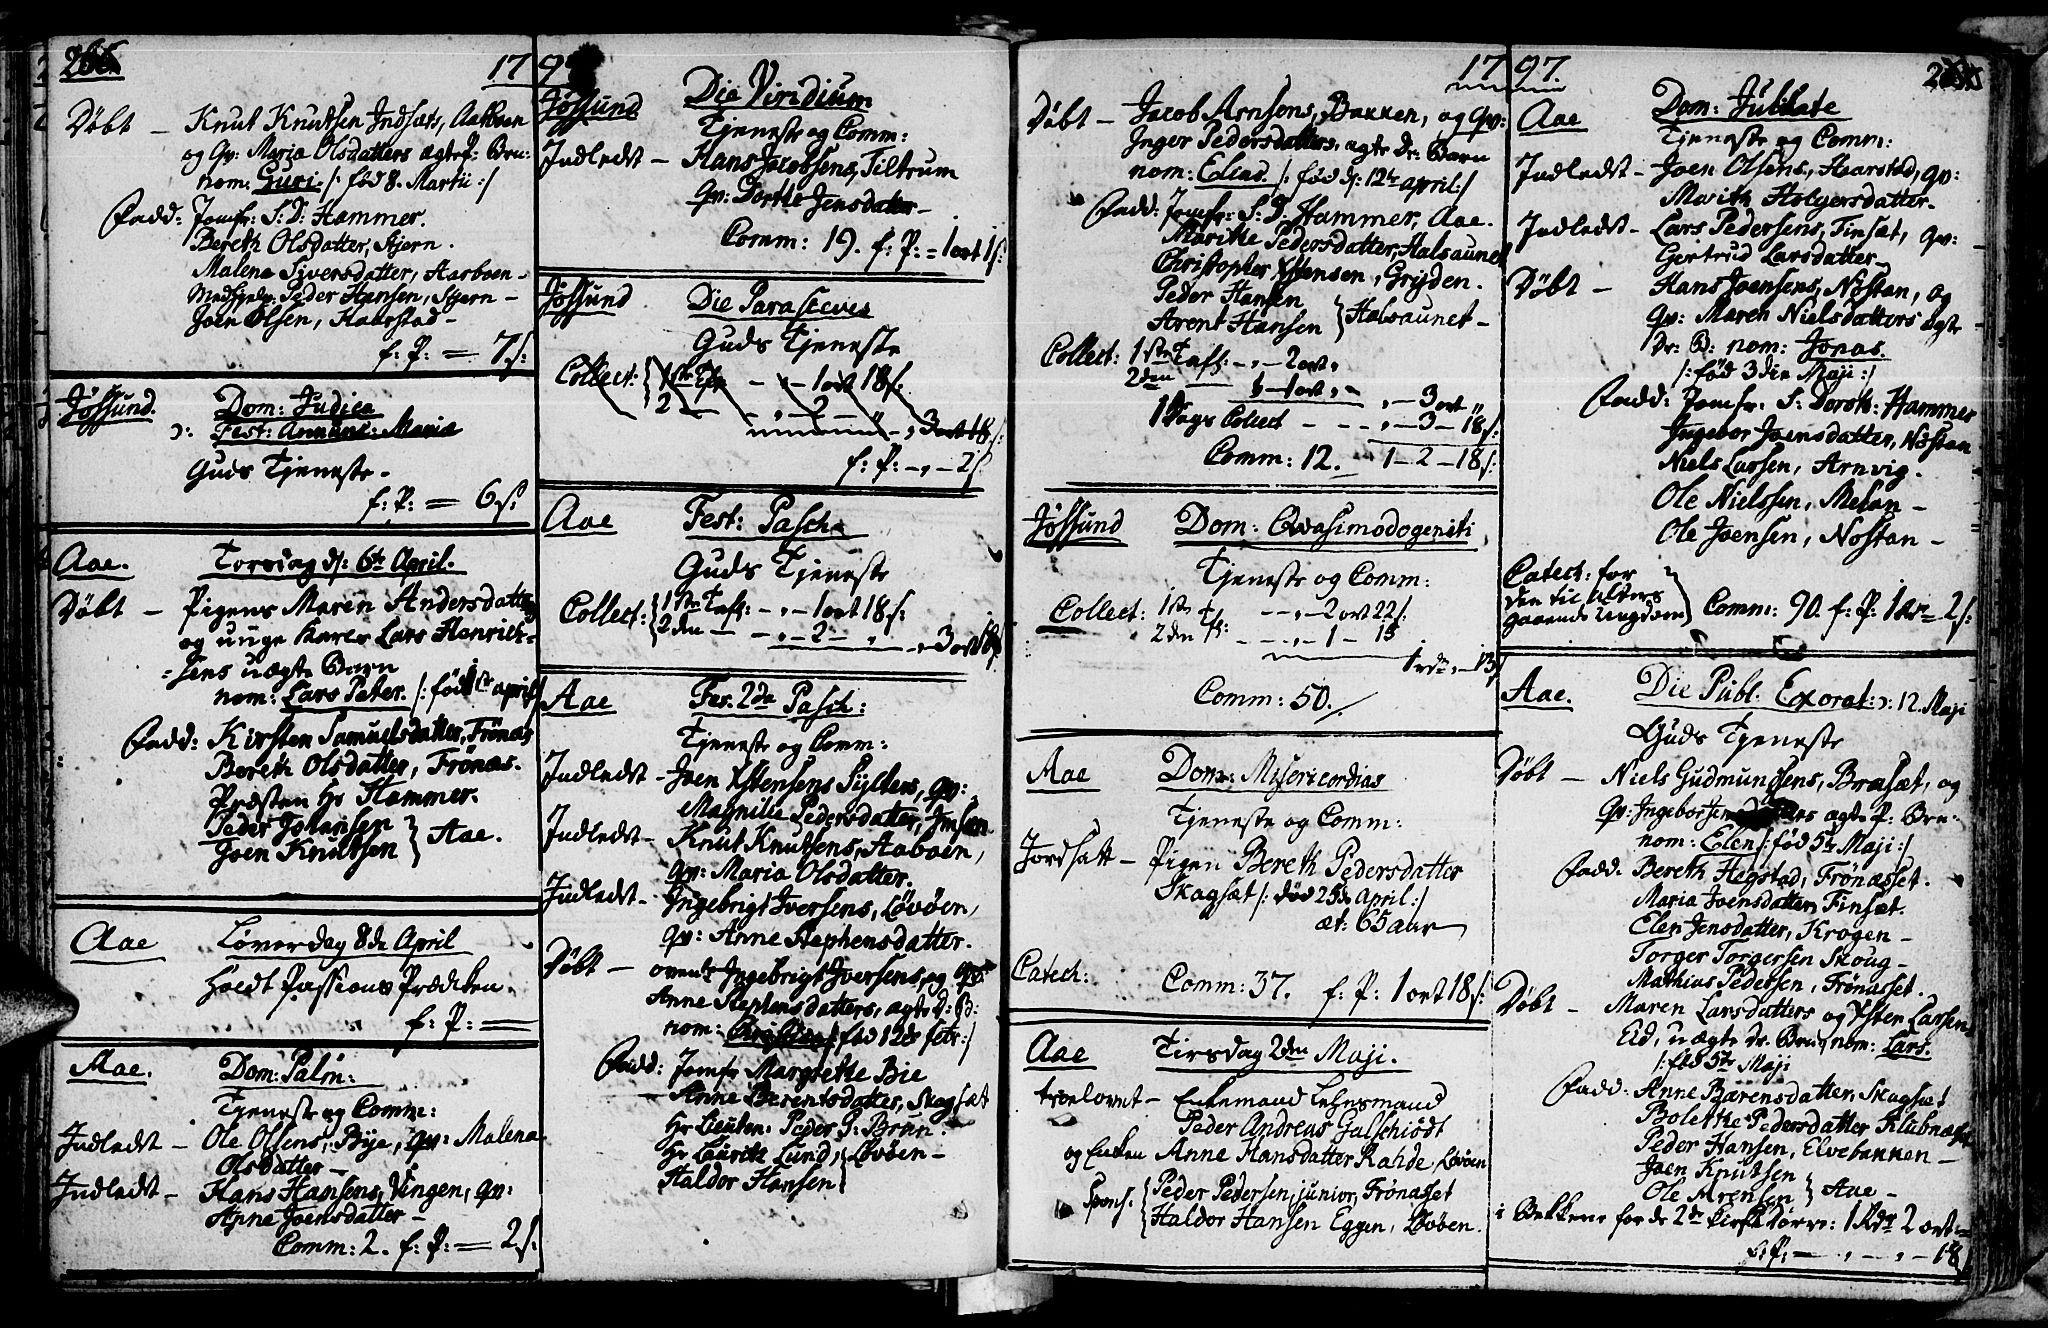 1797.
Døbt – Knut Knutsen Indsæts, Aaboen
og Qv: Maria Olsdatters ægtef: Barn:
nom: Guri. /: fød 8. Martii :/
Fadd: Jomfr: S: D: Hammer.
Bereth Olsdatter, Stjern.
Malena Siversdatter, Aasboen –
Medhjelp: Peder Hansen, Stjern –
Joen Olsen, Haarstad –
f: P: = 7 s:
Jøssund. Dom: Judica
ɔ: Fest: Annunc: Maria
Guds Tjeneste –
f: P: = 6 s:
Aae. Torsdag d: 6te April.
Døbt – Pigens Maren Andersdatters
og unge Karls Lars Henrich-
-sens uægte Barn
nom: Lars Peter. /: fød 1ste april /
Fadd: Kirsten Samuelsdatter, Frönæs
Bereth Olsdatter, Frönæs.
Præsten Hr Hammer.
Peder Johansen
Joen Knutsen } Aae.
Aae Löverdag 8de April
Holdt Passions Prædiken.
f: P: =
Aae. Dom: Palm:
Tjeneste og Comm:
Indledt – Ole Olsens, Bye, qv: Malena
Olsdatter –
Indledt – Hans Hansens, Vingen, qv:
Anne Joensdatter –
Comm: 2. f: P: = 2 s:
Jøssund Die Viridium
Tjeneste og Comm:
Indledt – Hans Jacobsens, Tiltrum
qv: Dorthe Jensdatter –
Comm: 19. f: P: = 1 ort 1 s:
Jøssund Die Parasceves
Guds Tjeneste
Collect: { 1ste Tfr – „ – 1 ort 18 s:
2 – – „ – 2 – „ – „ 3 ort 18 s:
f: P: – „ – 2 s
Aae Fest: Pasch:
Guds Tjeneste
Collect: { 1ste Tafl: – „ – 1 ort 18 s:
2den – – „ – 2 – „ – „ 3 ort 18 s
Aae Fes. 2da Pasch:
Tjeneste og Comm:
Indledt – Joen Ystensens Sylters, qv:
Magnille Pedersdatter,
Indledt – Knut Knutsens, Aaboen,
qv: Maria Olsdatter.
Indledt – Ingebrigt Iversens, Lövöen,
qv: Anne Stephensdatter.
Døbt – ovend: Ingebrigt Iversens, og qv:
Anne Stephensdatters, ægte D: B:
nom: Christian /: fød 12te febr: /
Fadd: Jomfr Margrethe Bie
Anne Berentsdatter, Skagsæt
Hr Lieuten: Peder G: Brun.
Hr Laurith Lund, } Lövöen –
Haldor Hansen
1797.
Døbt – Jacob Arnsens, Bakken, og qv:
Inger Pedersdatters, ægte Dr: Barn
nom: Elias. /: fød d: 12te april :/
Fadd: Jomfr: S: D: Hammer, Aae.
Marithe Pedersdatter, Halsaunet
Christopher Ystensen, Gryden.
Peder Hansen
Arent Hansen } Halsaunet –
Collect: 1ste Tafl: – „ – 2 ort „
2den – „ – 1 ort „ –
„ – 3 ort „
Dags Collect – – – „ – 3 – 18 s:
Comm: 12. 1 – 2 – 18 s:
Jøssund Dom: Qvasimodogeniti
Tjeneste og Comm:
Collect: 1ste Tf: – „ – 2 ort 22 s.
2den Tf: – „ – 1 – 15
1 rd „ – 13 s
Comm: 50.
Aae Dom: Misericordias
Tjeneste og Comm:
Jordsatt – Pigen Bereth Pedersdatter
Skagsæt /: død 25de April :/
æt: 65 aar
Catech: Comm: 37. f: P: 1 ort 18 s:
Aae Tirsdag 2den Maji.
troelovet – Enkemand Lehnsmand
Peder Andreas Galschiödt
og Enken Anne Hansdatter Rahde, Lövöen
Spons: { Peder Pedersen, junior, Frönæsset
Haldor Hansen Eggen, Lövöen.
Aae Dom: Jubilate
Tjeneste og Comm:
Indledt – Joen Olsens, Haarstad, qv:
Marith Holgersdatter.
Indledt – Lars Pedersens, Finsæt, qv:
Gjertrud Larsdatter –
Døbt – Hans Joensens, Nostan, og
qv: Maren Nielsdatters ægte
Dr: B: nom: Jonas.
/: fød 3die Maji :/
Fadd: Jomfr: S: Doroth: Hammer
Ingebor Joensdatter, Nostan
Niels Larsen, Arnvig.
Ole Nielssen, Melan –
Ole Joensen, Nostan –
Catech: for
den til Alters
gaaende Ungdom } Comm: 90. f: P: 1 – 2 s:
Aae. Die Publ: Exorat: ɔ: 12. Maji
Guds Tjeneste
Døbt – Niels Gudmundsens, Bræsæt, og
qv: Ingebor ægte P: Barn:
nom: Elen /: fød 5te Maji :/
Fadd. Bereth Hegstad, Frönæsset.
Maria Joensdatter, Finsæt.
Elen Jensdatter, Krogen –
Torger Torgersen Skoug –
Mathias Pedersen, Frönæsset.
Døbt – Maren Larsdatters og Ysten Larsens
Eid, uægte dr: Barn, nom: Lars.
/: fød 5te Maji
Fadd. Anne Bærensdatter, Skagsæt
Bolethe Pedersdatter Klubnæset
Peder Hansen, Elvebakken –
Joen Knutsen
Ole Arensen } Aae –
i Bekkene for de 2de Kirkedörre: 1 Rdr 2 ort =
f: P: – „ – „ – 18